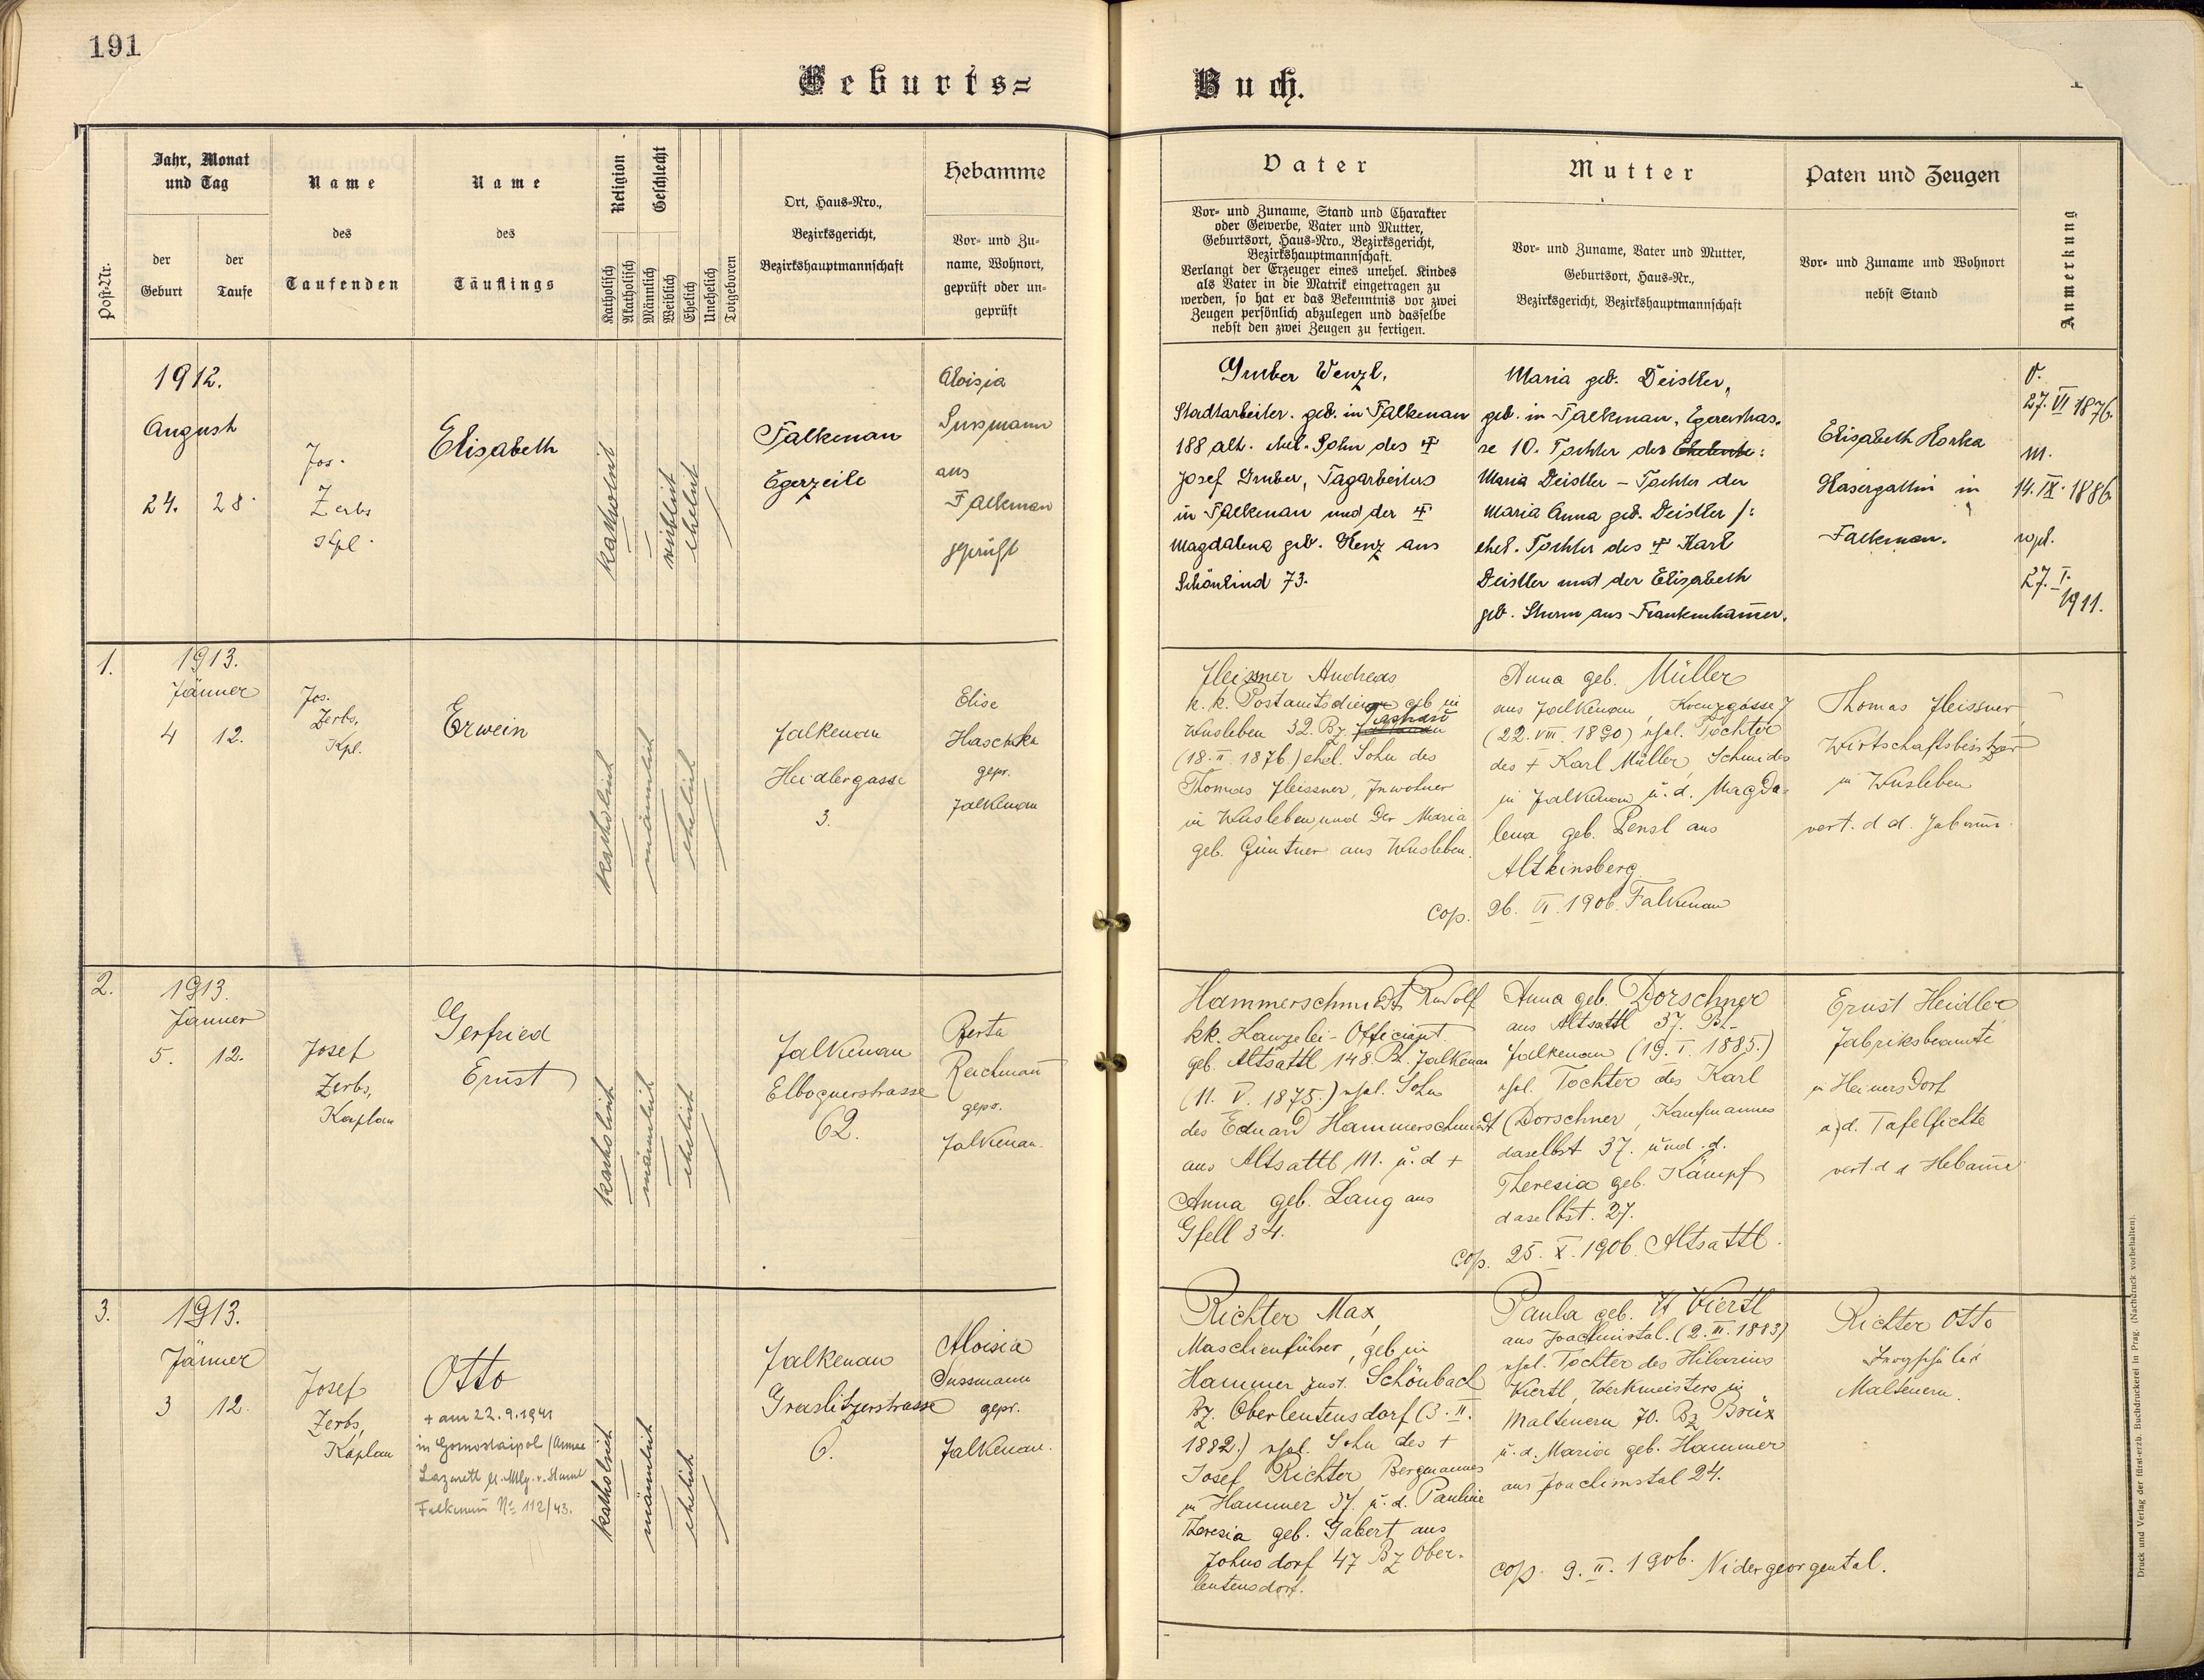 191
Geburts=
Buch.
Post-Nr.
Jahr, Monat
und Tag
der
Geburt
der
Taufe
Name
des
Taufenden
Name
des
Täuflings
Religion
Katholisch
Akatholisch
Geschlecht
Männlich
Weiblich
Ehelich
Unehelich
Totgeboren
Ort, Haus-Nro.,
Bezirksgericht,
Bezirkshauptmannschaft
Hebamme
Vor- und Zu-
name, Wohnort,
geprüft oder un-
geprüft
Vater
Vor- und Zuname, Stand und Charakter
oder Gewerbe, Vater und Mutter,
Geburtsort, Haus-Nro., Bezirksgericht,
Bezirkshauptmannschaft.
Verlangt der Erzeuger eines unehel. Kindes
als Vater in die Matrik eingetragen zu
werden, so hat er das Bekenntnis vor zwei
Zeugen persönlich abzulegen und dasselbe
nebst den zwei Zeugen zu fertigen.
Mutter
Vor- und Zuname, Vater und Mutter,
Geburtsort, Haus-Nr.,
Bezirksgericht, Bezirkshauptmannschaft
Paten und Zeugen
Vor- und Zuname und Wohnort
nebst Stand
Anmerkung
1912.
August
24. 28.
Jos.
Zerbs
Elisabeth
katholisch
weiblich
ehelich
Falkenau
Egerzeile
Aloisia
Sussmann
aus
Falkenau
geprüft
Gruber Wenzl,
Stadtarbeiter. geb. in Falkenau
188 alt. ehel. Sohn des †
Josef Gruber, Tagarbeiters
in Falkenau und der †
Magdalena geb. Kenz aus
Schönlind 73.
Maria geb. Deistler,
geb. in Falkenau, Egerstras-
se 10. Tochter der Eheleute:
Maria Deistler - Tochter der
Maria Anna geb. Deistler /:
ehel. Tochter des † Karl
Deistler und der Elisabeth
geb. Sturm aus Frankenhamer.
Elisabeth Korka
in
Falkenau.
V.
27. VI 1876.
M.
14. IX. 1886.
copl.
27. I.
1911.
1.
1913.
Jänner
4 12.
Jos.
Zerbs,
Kpl.
Erwein
katholisch
männlich
ehelich
Falkenau
Heidlergasse
3.
Elise
Haschka
gepr.
Falkenau
Fleissner Andreas
k. k. Postamtsdiener geb in
Wusleben 32. Bz.
(18. II. 1876.) ehel. Sohn des
Thomas Fleissner, Inwohner
in Wusleben, und der Maria
geb. Güntner aus Wusleben.
Anna geb. Müller
aus Falkenau, Kreuzgasse 7
(22. VIII. 1890) ehel. Tochter
des + Karl Müller, Schmides
in Falkenau u. d. Magda-
lena geb. Pensl aus
Altkinsberg.
cop. 26. VI. 1906. Falkenau
Thomas Fleissner,
Wirtschaftsbesitzer
in Wusleben
vert. d d.
2.
1913.
Jänner
5. 12.
Josef
Zerbs,
Kaplan
Gerfried
Ernst
katholisch
männlich
ehelich
Falkenau
Elbognerstrasse
62.
Berta
Reichmann
gepr.
Falkenau.
Hammerschmidt Rudolf
kk. Kanzelei-Officiant
geb. Altsattl 148. Bz. Falkenau
(11. V. 1875.) ehel. Sohn
des Eduard Hammerschmidt
aus Altsattl 111. u. d +
Anna geb. Lang aus
Gfell 34.
Anna geb. Dorschner
aus Altsattl 37. Bz.
Falkenau (19. I. 1885.)
ehel. Tochter des Karl
Dorschner, Kaufmannes
daselbst 37. und. d.
Theresia geb. Kämpf
daselbst. 27.
cop. 25. X. 1906. Altsattl.
Ernst Heidler
Fabriksbeamte
in Heinersdorf
a/d. Tafelfichte
vert. d d Hebame
3.
1913.
Jänner
3 12.
Josef
Zerbs,
Kaplan
Otto
+ am 22.9.1941
in Gornostaipol (Armee
Lazarett
Falkenau No 112/43.
katholisch
männlich
ehelich
Falkenau
Graslitzerstrasse
6.
Aloisia
Sussmann
gepr.
Falkenau.
Richter Max,
Maschienführer, geb in
Hammer Schönbach
Bz. Oberleutensdorf (3. II.
1882.) ehel. Sohn des +
Josef Richter Bergmannes
in Hammer 37. u. d. Pauline
Theresia geb. Gabert aus
Johnsdorf 47 Bz Ober-
leutensdorf.
Paula geb. Viertl
aus Joachimstal. (2. III. 1883)
ehel. Tochter des Hilarius
Viertl, Werkmeisters in
Maltheuern 70. Bz Brüx
u. d. Maria geb. Hammer
aus Joachimstal 24.
cop. 9. II. 1906. Nidergeorgental.
Richter Otto
Maltheuern.
Druck und Verlag der fürst-erzb. Buchdruckerei in Prag. (Nachdruck vorbehalten).